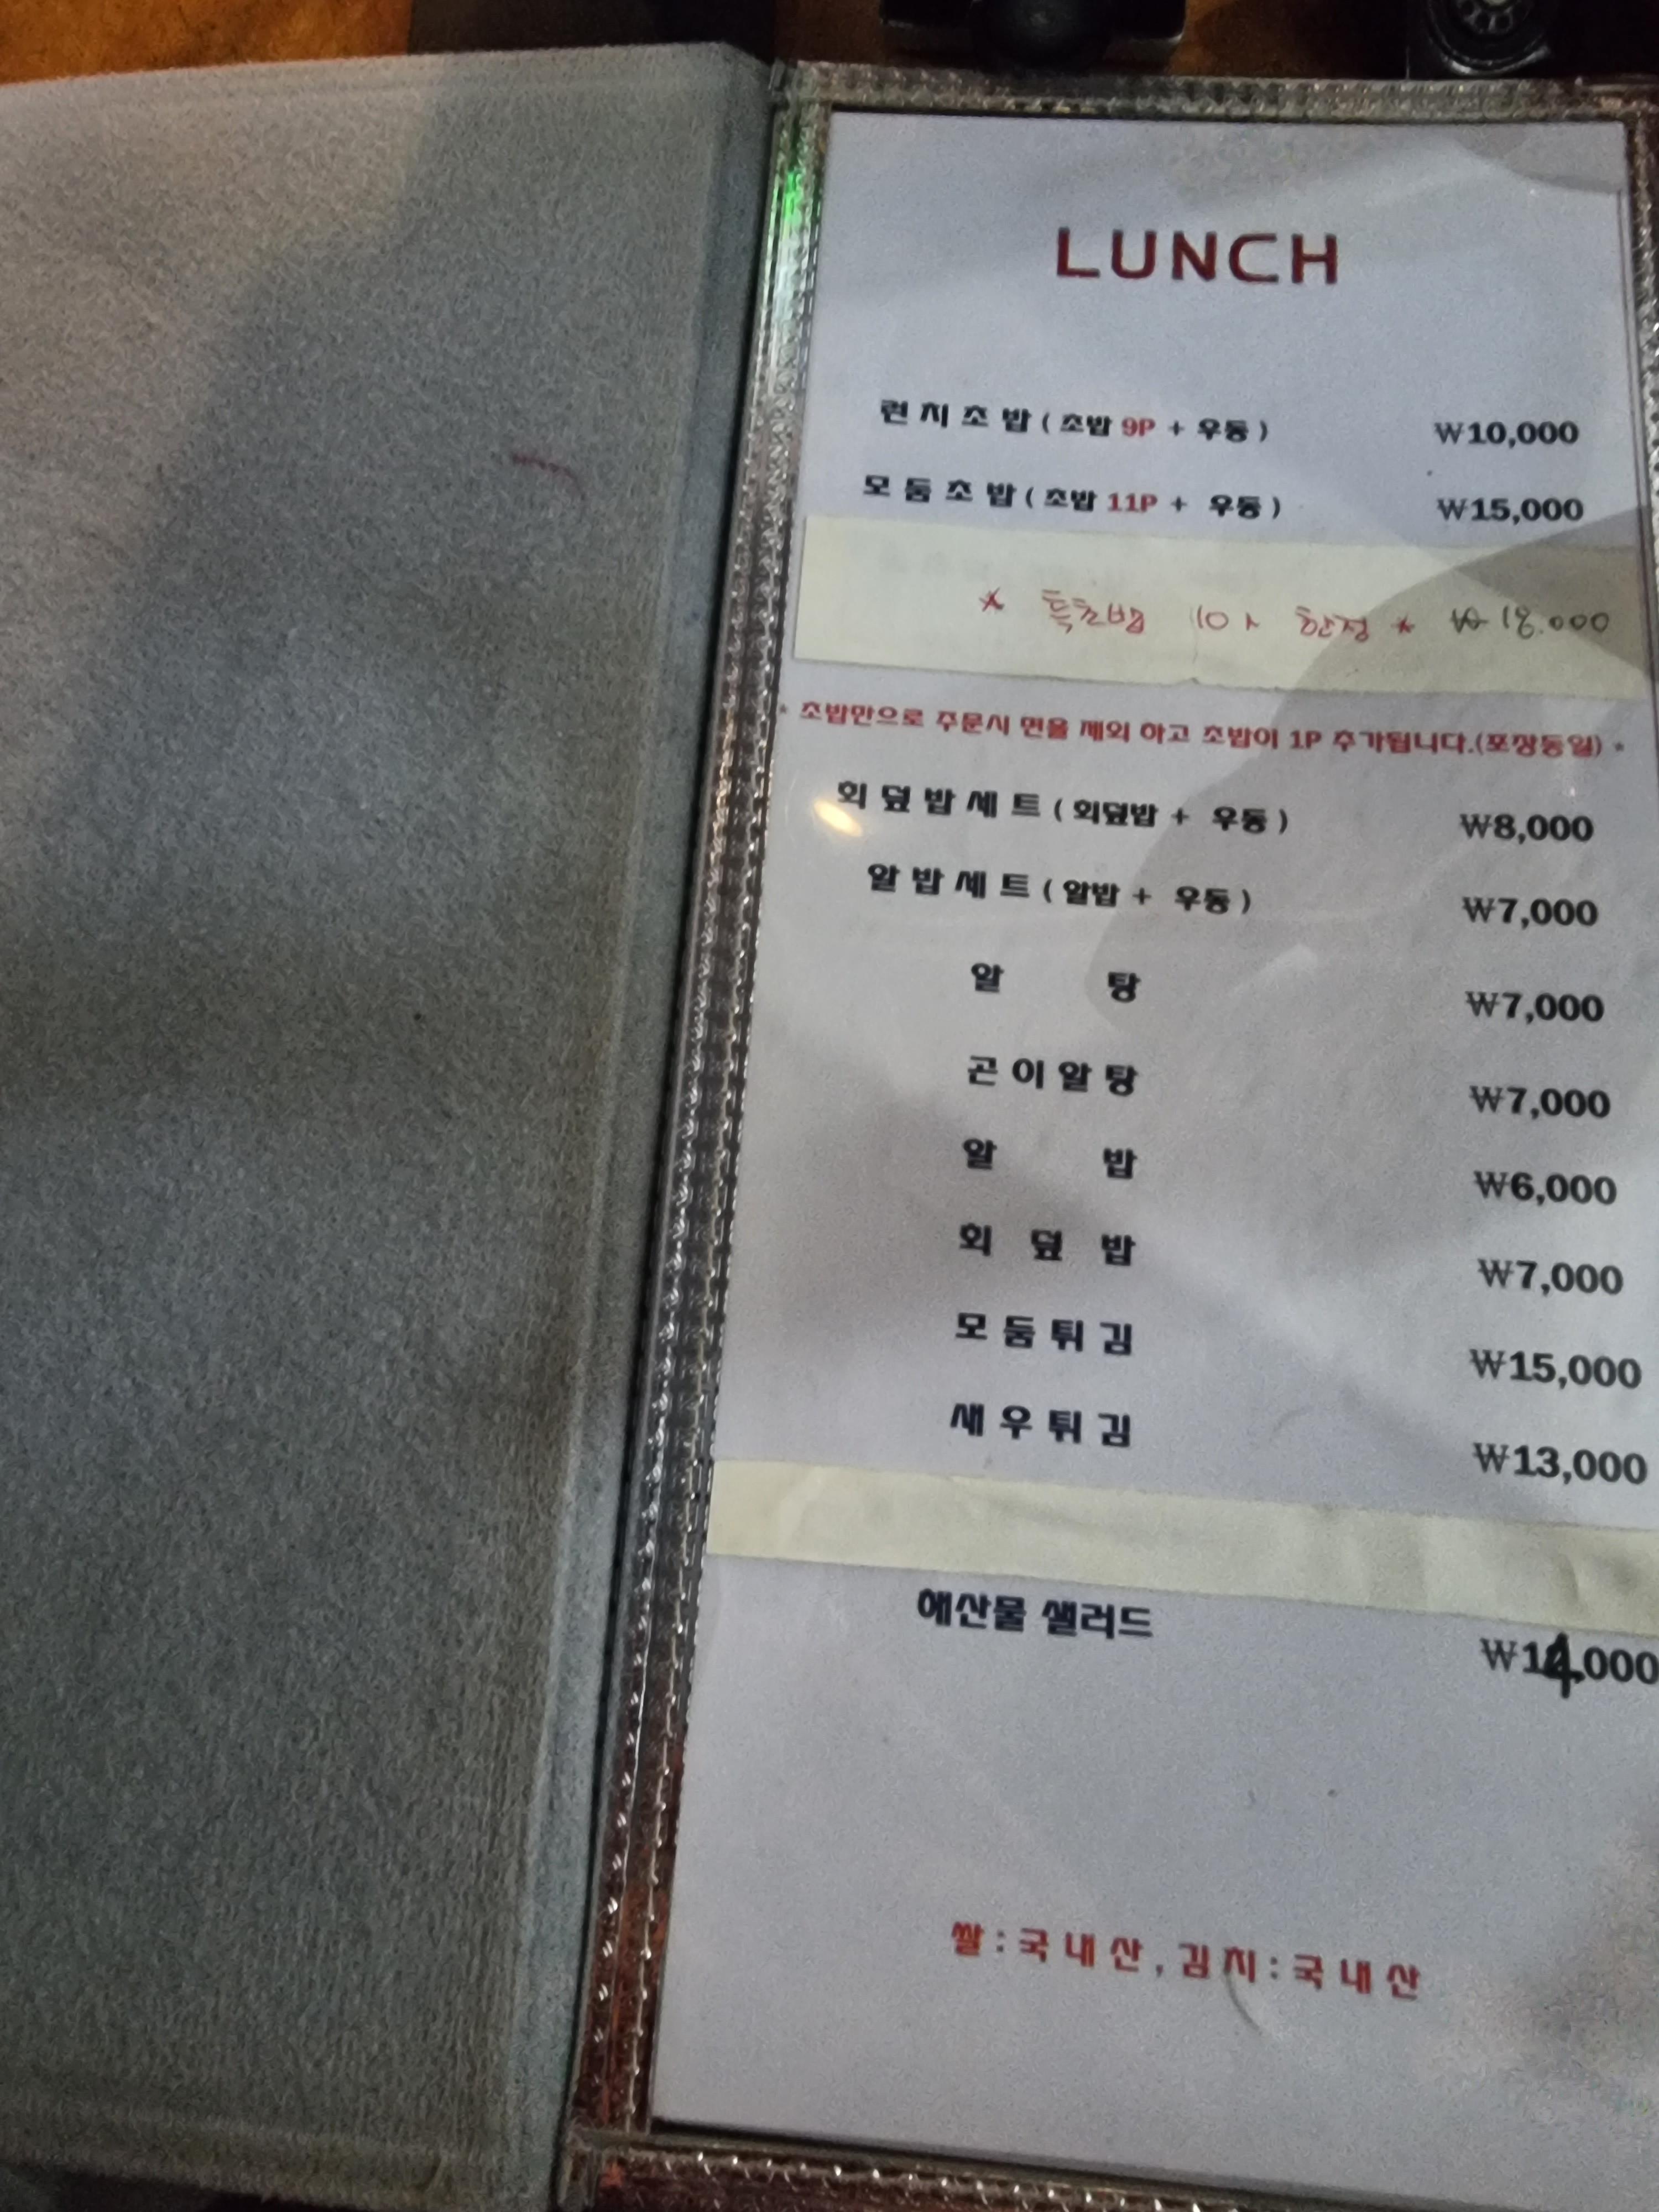 LUNCH
런치초밥 (초밥 9P + 우동) ₩10,000
모둠초밥 (초밥 11P + 우동) ₩15,000
* 특초밥 10人 한정 * ₩18.000
* 초밥만으로 주문시 면을 제외 하고 초밥이 1P 추가됩니다.(포장동일) *
회덮밥세트 (회덮밥 + 우동) ₩8,000
알밥세트 (알밥 + 우동) ₩7,000
알탕 ₩7,000
곤이알탕 ₩7,000
알밥 ₩6,000
회덮밥 ₩7,000
모둠튀김 ₩15,000
새우튀김 ₩13,000
해산물 샐러드 ₩14,000
쌀:국내산, 김치:국내산